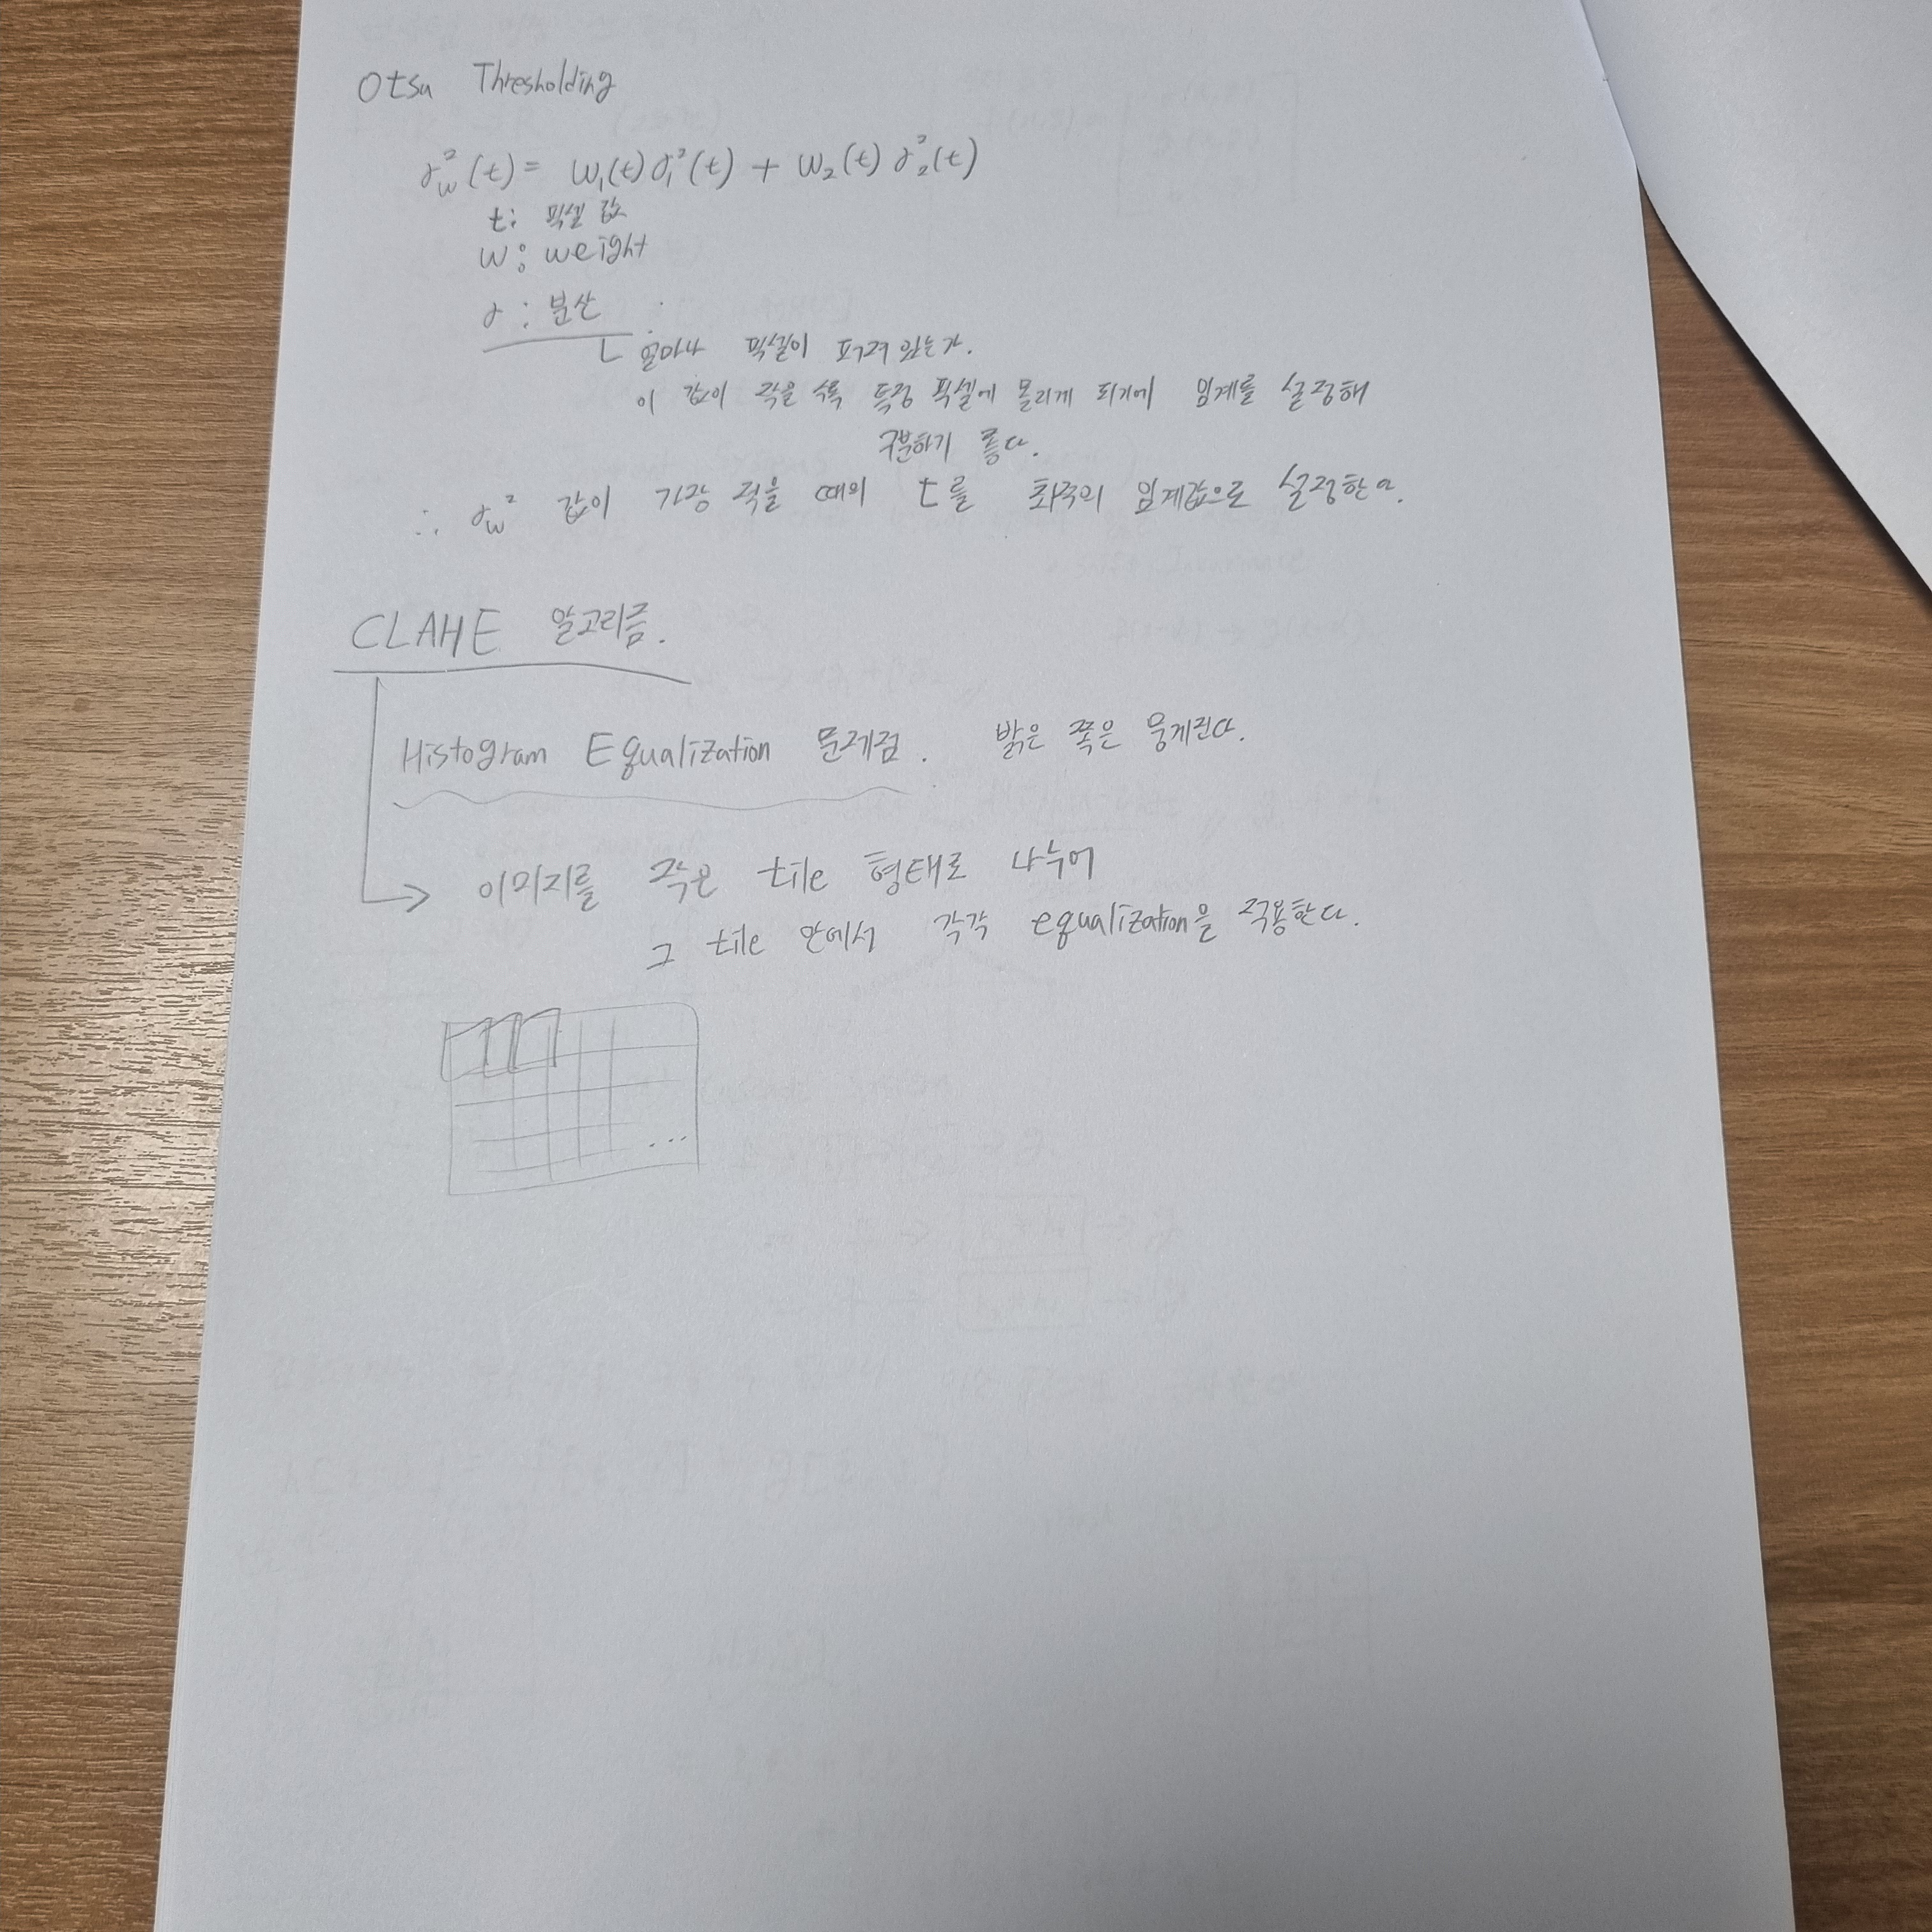 Otsu Thresholding
σ_w²(t) = w₁(t)σ₁²(t) + w₂(t)σ₂²(t)
t: 픽셀 값
w: weight
σ : 분산
얼마나 픽셀이 퍼져 있는가.
이 값이 작을 수록 특정 픽셀에 몰리게 되기에 임계를 설정해
구분하기 좋다.
∴ σ_w² 값이 가장 적을 때의 t를 최적의 임계값으로 설정한다.
CLAHE 알고리즘.
Histogram Equalization 문제점. 밝은 쪽은 뭉게진다.
이미지를 작은 tile 형태로 나누어
그 tile 안에서 각각 equalization을 적용한다.
...